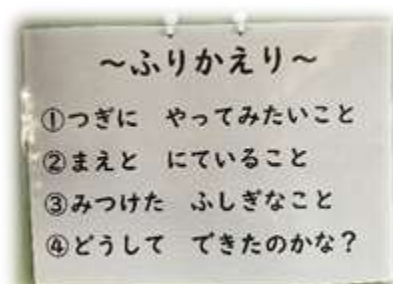 ～ふりかえり～
①つぎに　やってみたいこと
②まえと　にていること
③みつけた　ふしぎなこと
④どうして　できたのかな？